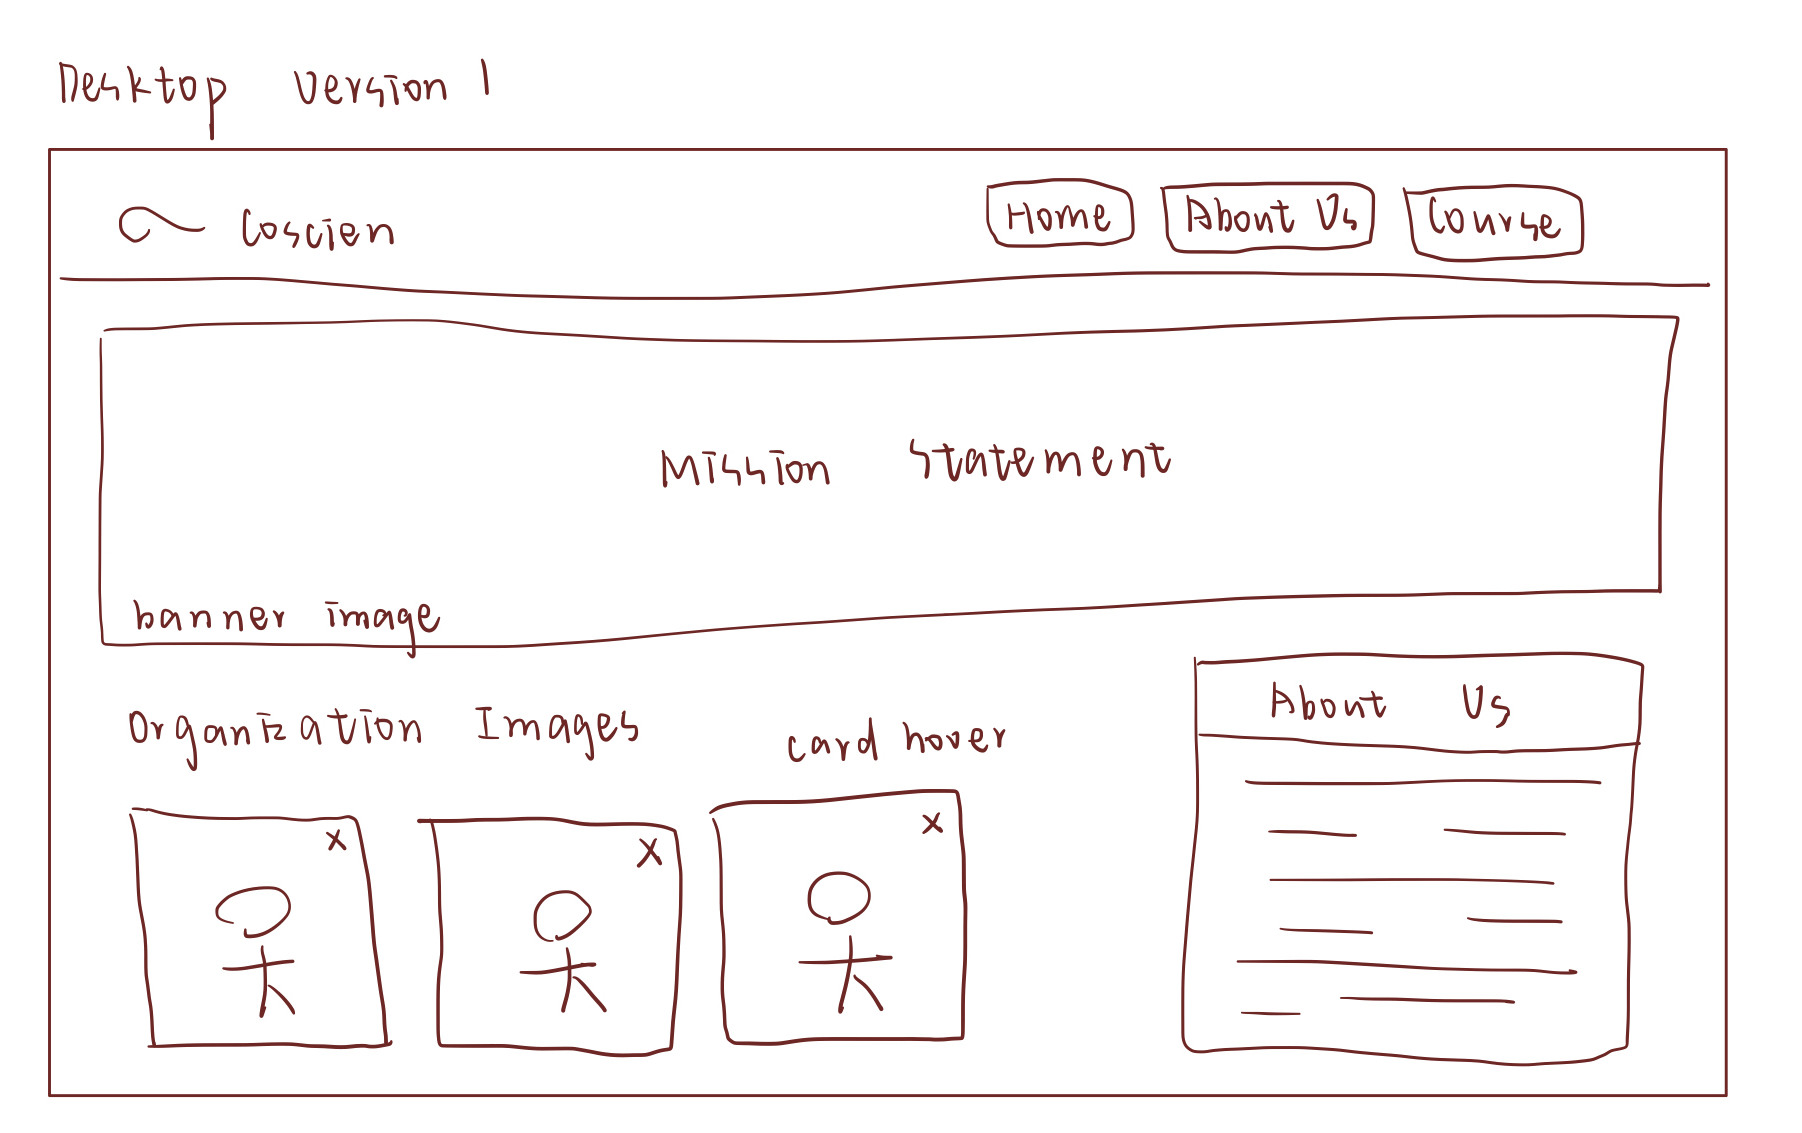 Desktop Version 1
Coscien
Home
About Us
Course
Mission Statement
banner image
Organization Images
card hover
x
x
x
About Us